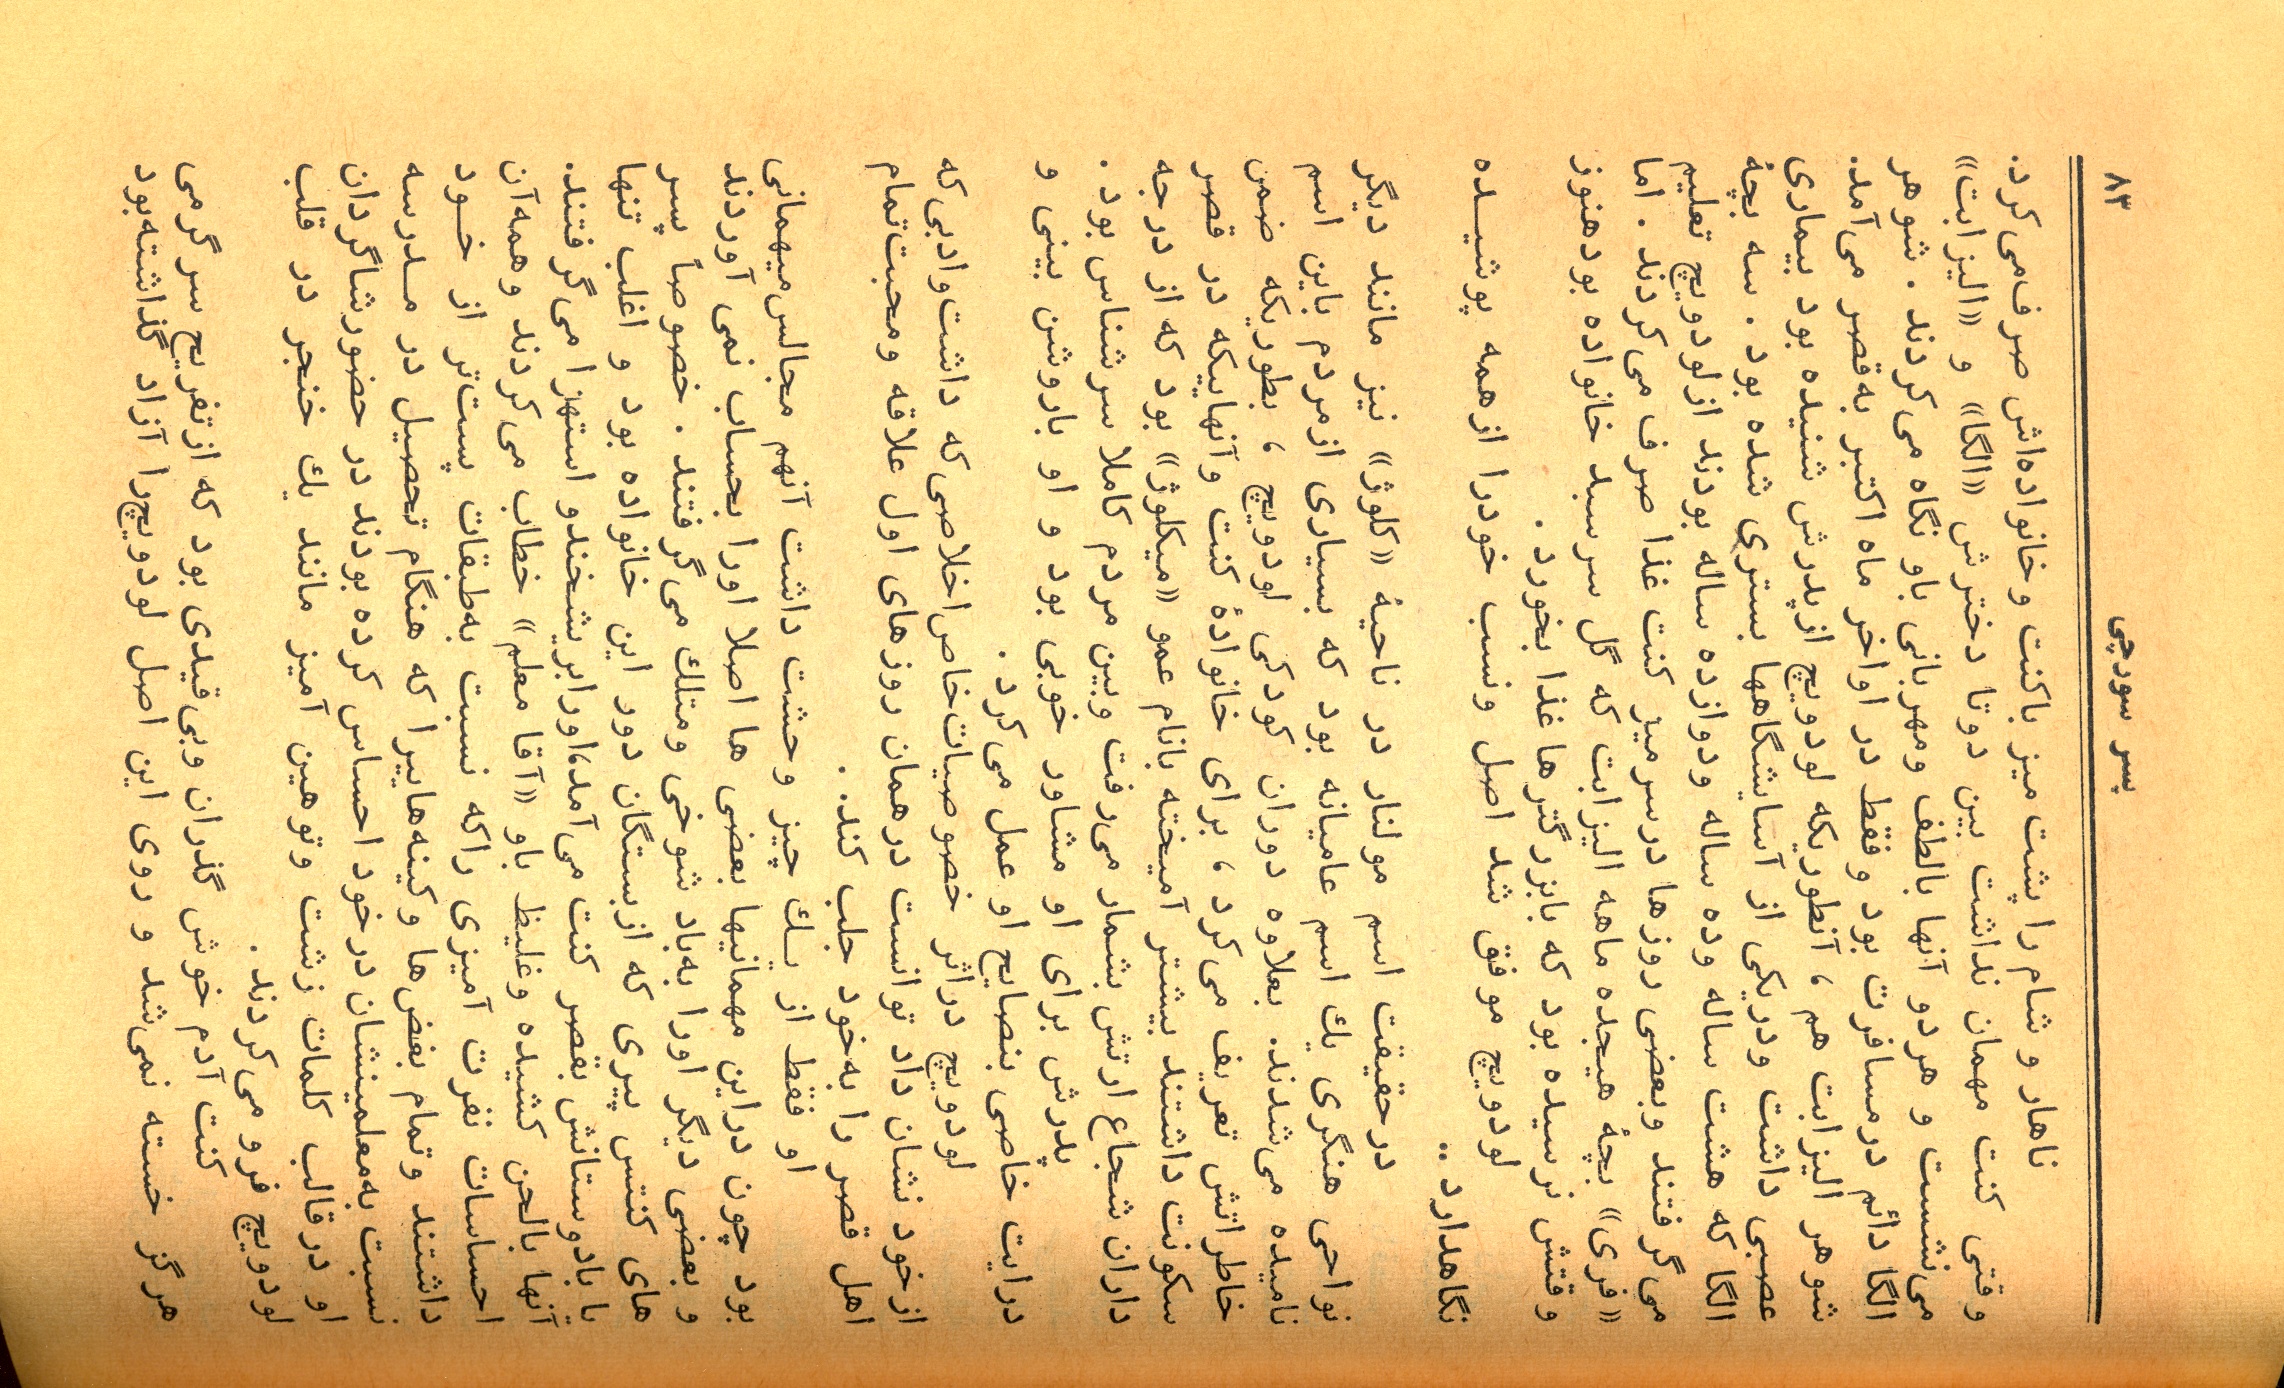 ۸۳
پسر سورچی
ناهار و شام را پشت میز باکنت وخانواده‌اش صرف‌می‌کرد.
وقتی کنت مهمان نداشت بین دوتا دخترش «الگا» و «الیزابت»
می‌نشست و هردو آنها بالطف ومهربانی باو نگاه می‌کردند . شوهر
الگا دائم درمسافرت بود و فقط در اواخر ماه اکتبر به‌قصر می‌آمد.
شوهر الیزابت هم ، آنطوریکه لودویچ ازپدرش شنیده بود بیماری
عصبی داشت ودریکی از آسایشگاهها بستری شده بود . سه بچهٔ
الگا که هشت ساله وده ساله ودوازده ساله بودند ازلودویچ تعلیم
می‌گرفتند وبعضی روزها درسرمیز کنت غذا صرف می‌کردند . اما
«فری» بچهٔ هیجده ماهه الیزابت که گل سرسبد خانواده بودهنوز
وقتش نرسیده بود که بابزرگترها غذا بخورد .
لودویچ موفق شد اصل ونسب خودرا ازهمه پوشیـده
نگاهدارد ..
درحقیقت اسم مولنار در ناحیهٔ «کلوژ» نیز مانند دیگر
نواحی هنگری یك اسم عامیانه بود که بسیاری ازمردم باین اسم
نامیده می‌شدند. بعلاوه دوران کودکی لودویچ ، بطوریکه ضمن
خاطراتش تعریف می‌کرد ، برای خانوادهٔ کنت وآنهاییکه در قصر
سکونت داشتند بیشتر آمیخته بانام عمو «میکلوژ» بود که از درجه
داران شجاع ارتش بشمار می‌رفت وبین مردم کاملا سرشناس بود .
پدرش برای او مشاور خوبی بود و او باروشن بینی و
درایت خاصی بنصایح او عمل می‌کرد .
لودویچ دراثر خصوصیات‌خاص‌اخلاصی‌که داشت‌وادبی‌که
ازخود نشان داد توانست درهمان روزهای اول علاقه ومحبت‌تمام
اهل قصر را به‌خود جلب کند. .
او فقط از یـك چیز وحشت داشت آنهم مجالس‌میهمانی
بود چون دراین مهمانیها بعضی ها اصلا اورا بحساب نمی آوردند
و بعضی دیگر اورا به‌باد شوخی ومتلك می‌گرفتند . خصوصاً پسر
های کنتس پیری که ازبستگان دور این خانواده بود و اغلب تنها
یا بادوستانش بقصر کنت می‌آمد،اورابریشخندو استهزا می‌گرفتند.
آنها بالحن کشیده وغلیظ باو «آقا معلم» خطاب می‌کردند وهمه‌آن
احساسات نفرت آمیزی راکه نسبت به‌طبقات پست‌تر از خـود
داشتند وتمام بغض‌ها وکینه‌هاییرا که هنگام تحصیل در مـدرسه
نسبت به‌معلمینشان درخود احساس کرده بودند در حضورشاگردان
او درقالب کلمات زشت وتوهین آمیز مانند یك خنجر در قلب
لودویچ فرو می‌کردند .
کنت آدم خوش گذران وبی‌قیدی بود که ازتفریح سرگرمی
هرگز خسته نمی‌شد و روی این اصل لودویچ‌را آزاد گذاشته‌بود